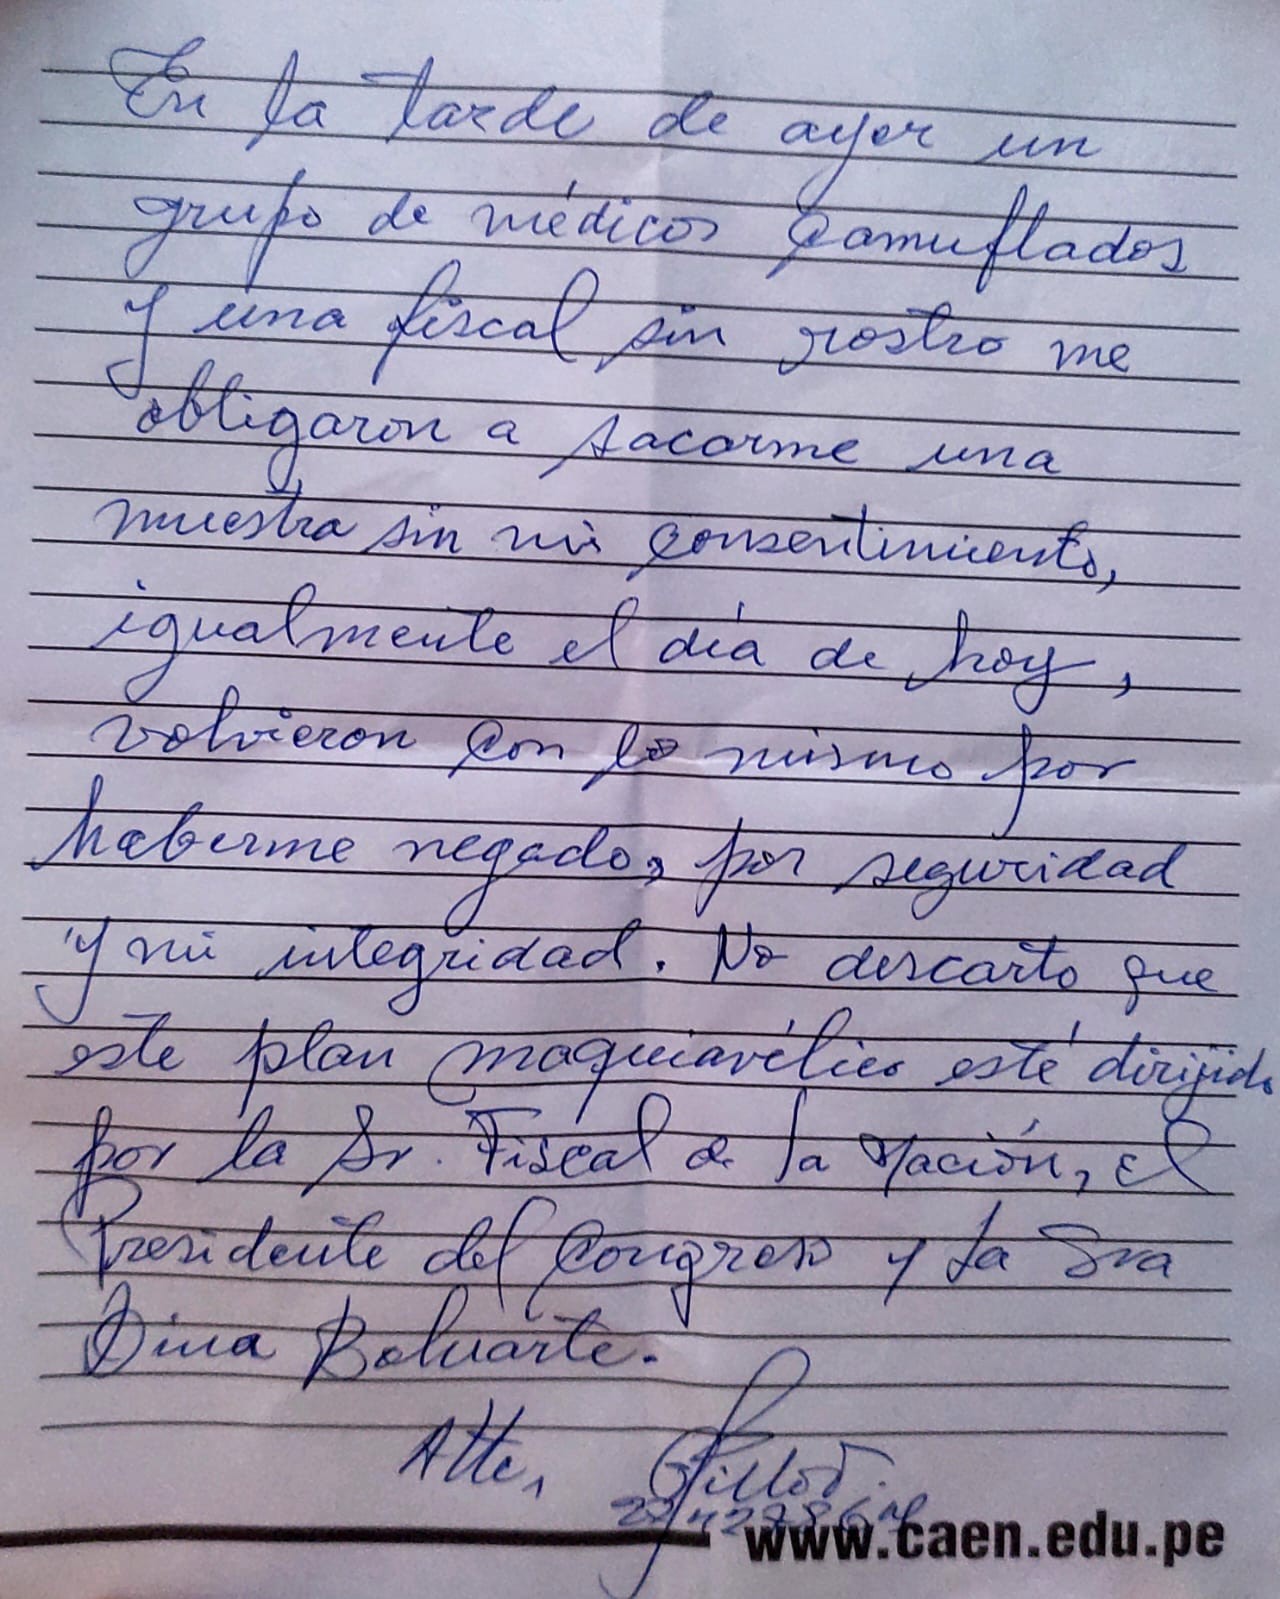 En la tarde de ayer un
grupo de médicos camuflados
y una fiscal sin rostro me
obligaron a sacarme una
muestra sin mi consentimiento,
igualmente el día de hoy,
volvieron con lo mismo por
haberme negado, por seguridad
y mi integridad. No descarto que
este plan maquiavélico esté dirijido
por la Sr. Fiscal de la Nación, el
Presidente del Congreso y la Sra
Dina Boluarte.
Atte,
www.caen.edu.pe